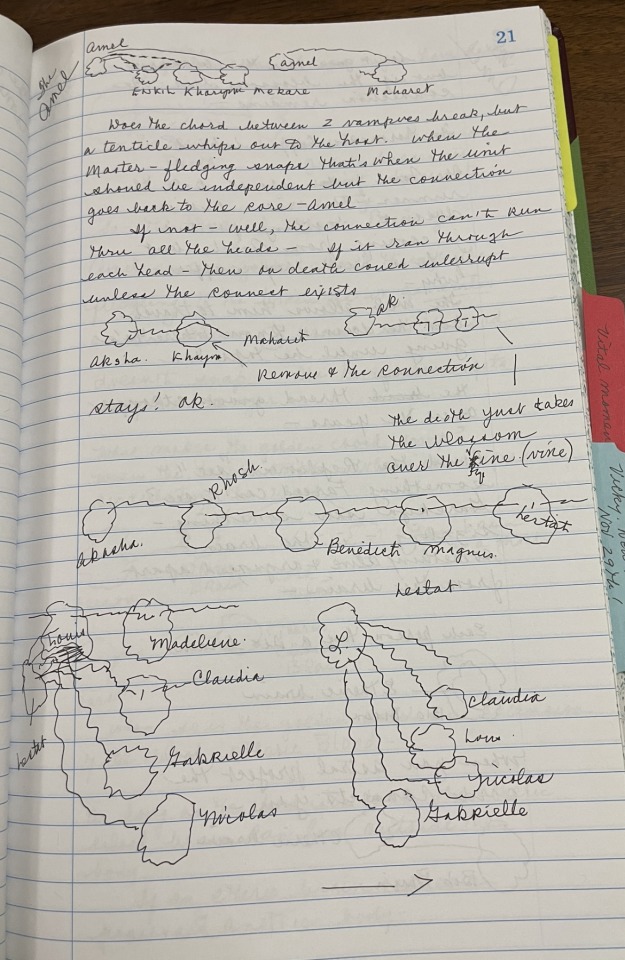 21
The Amel
Amel
Enkil Khayman Mekare
Amel
Maharet
Does the chord between 2 vampires break, but
a tenticle whips out to the host. When the
Master-fledging snaps that's when the unit
should be independent but the connection
goes back to the core - Amel
If not - well, the connection can't run
thru all the heads - If it ran through
each head - then on death could interrupt
unless the connect exists
Aksha. Khayman
Maharet
Remove & the connection
stays! ok.
ak.
The death just takes
the blossom
over the (vine)
Akasha. Rhosh. Benedict Magnus. Lestat
Lestat
Louis
Madeliene.
Claudia
Gabrielle
Nicolas
Lestat
L.
Claudia
Lou.
Nicolas
Gabrielle
Vital moment
Vicky, Nov
Nov 29th!